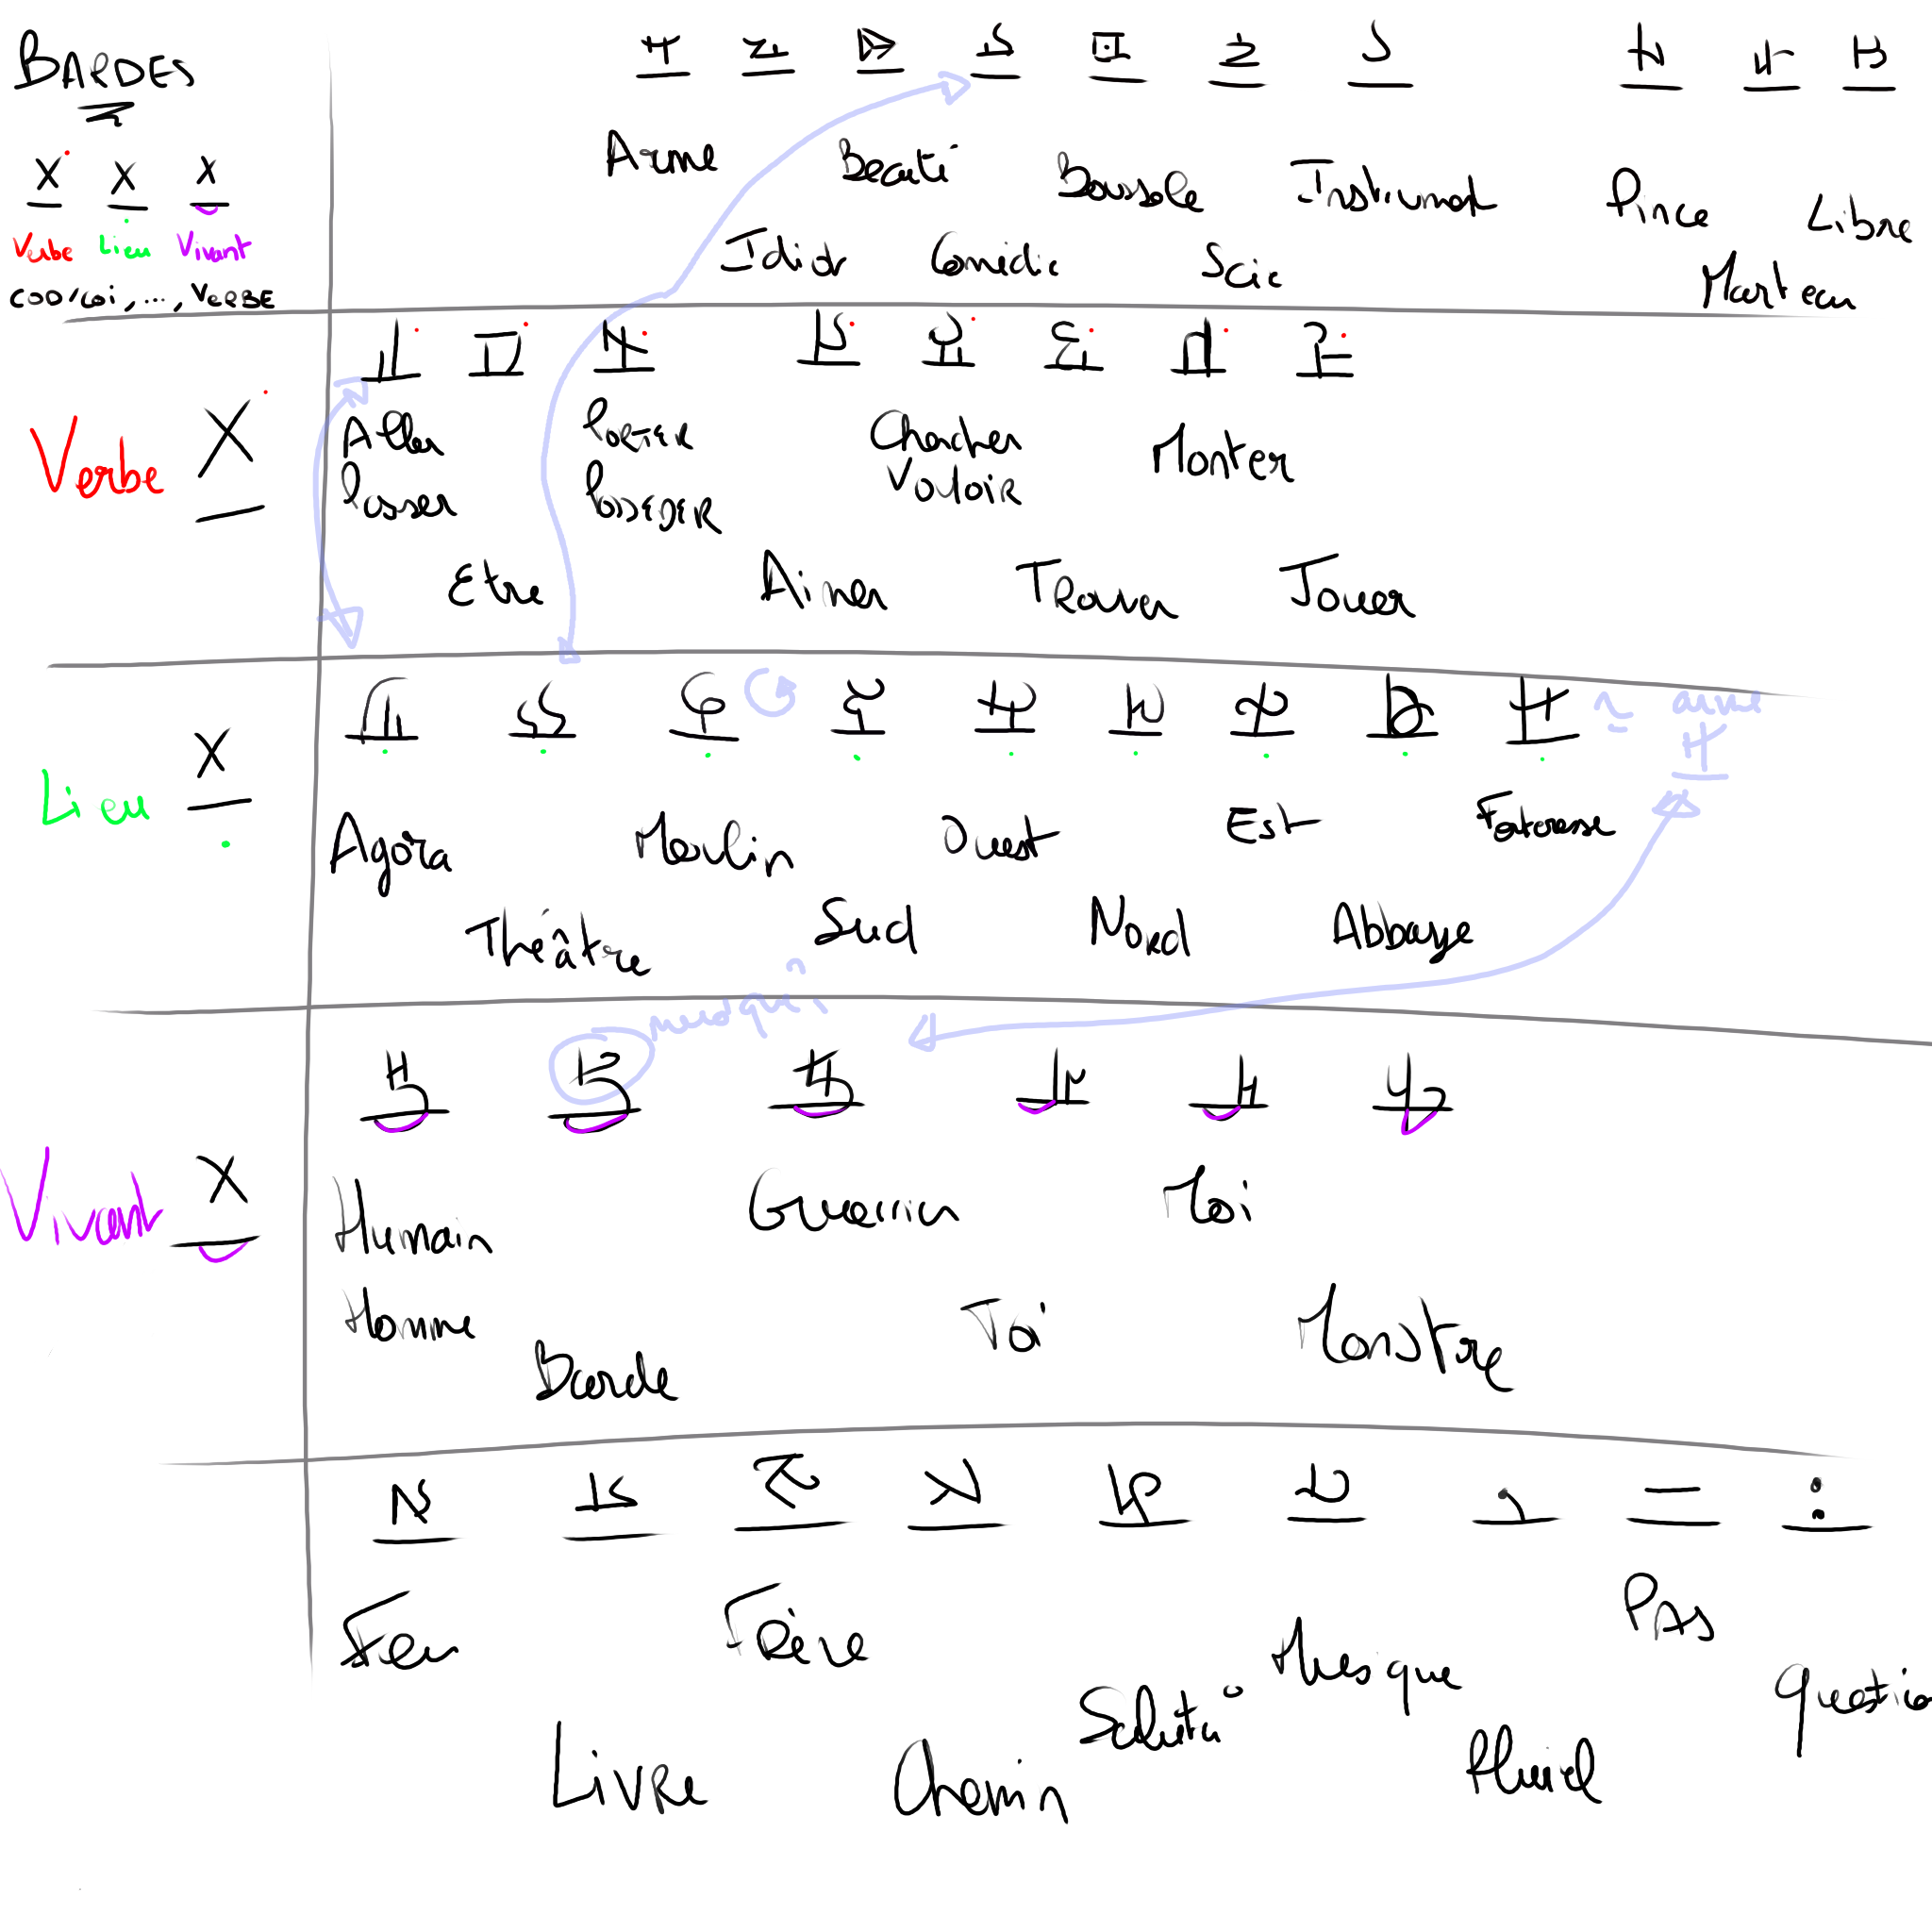 BARDES
X X X
Verbe Lieu Vivant
COD/COI, ..., VERBE
Arme Beauté Boussole Instrument Pince Libre
Idiot Comédie Scie Marteau
Verbe X
Aller Porter Chercher Monter
Passer POSSEDER Vouloir
Etre Aimer Trouver Jouer
≃ arme
Lieu X
Agora Moulin Ouest Est Forteresse
Théâtre Sud Nord Abbaye
musique?
Vivant X
Humain Guerrier Moi
Homme Barde Toi Monstre
PAS
Feu Frère Musique Question
Livre Chemin Salut Pluriel